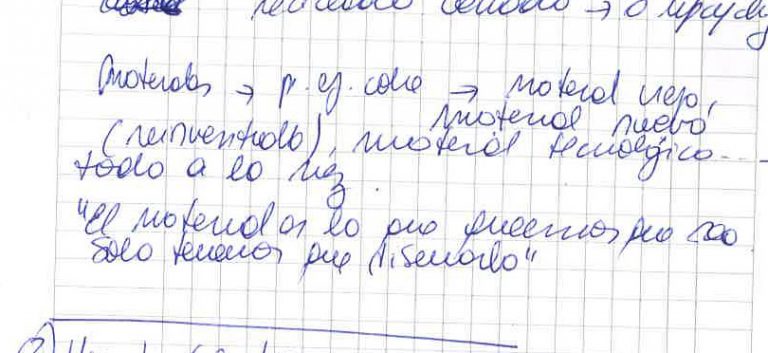 reciclado → o upcycl
Materiales → p. ej. cobre → material viejo,
material nuevo
(reinventado), material tecnológico...
todo a la vez.
"El material es lo que queremos que sea
solo tenemos que diseñarlo"